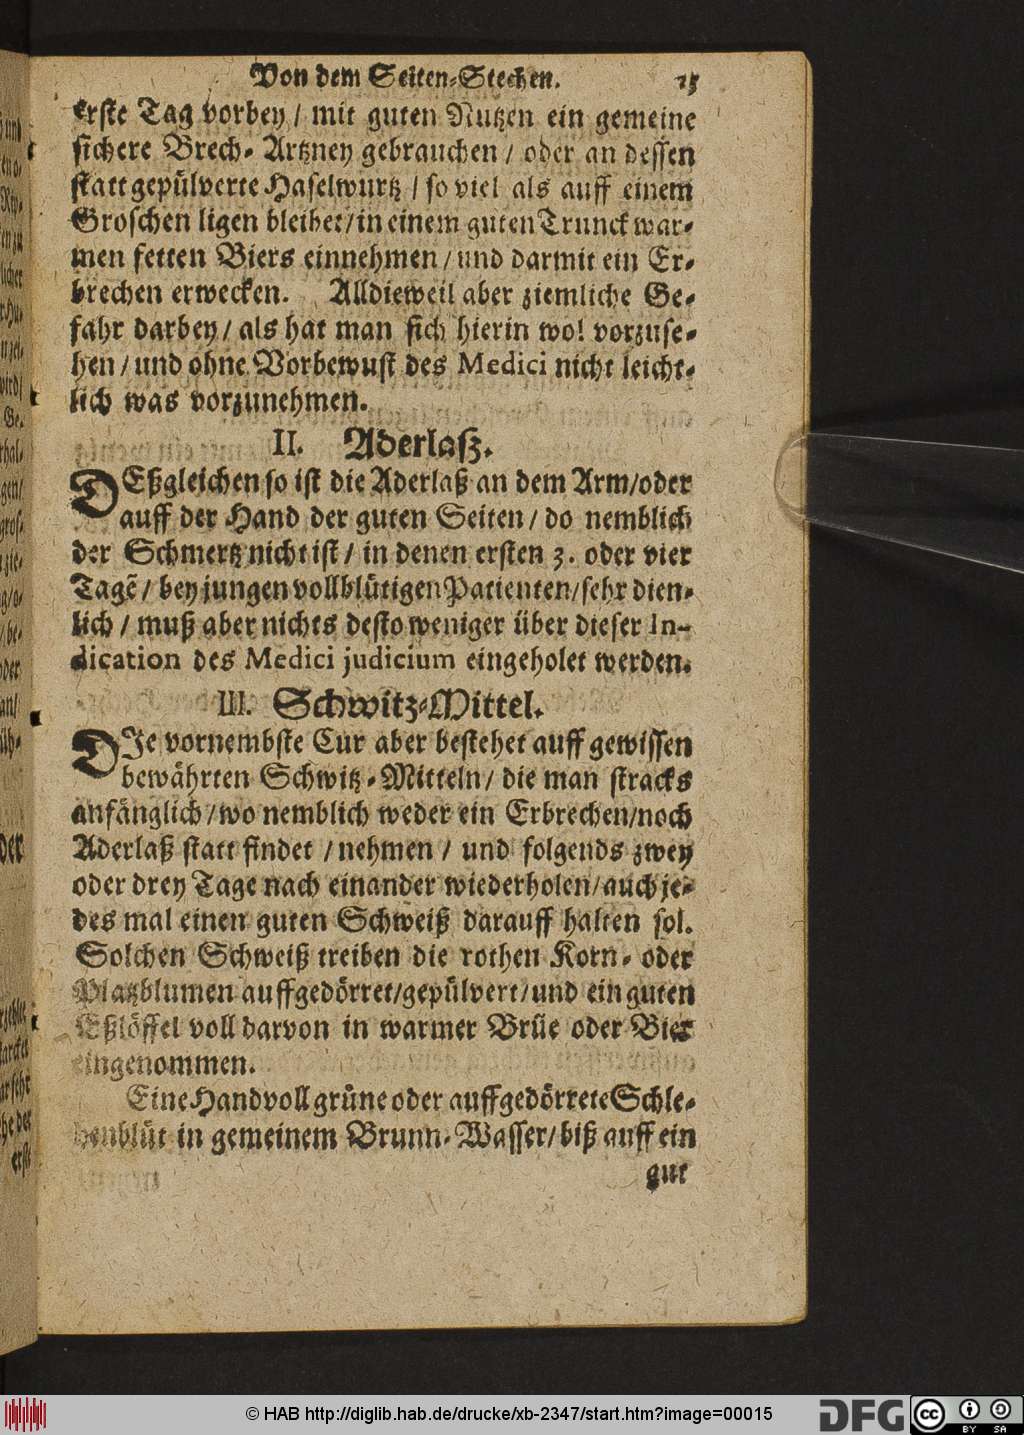 Von dem Seiten-Stechen. 15
erste Tag vorbey / mit guten Nutzen ein gemeine
sichere Brech-Artzney gebrauchen / oder an dessen
statt gepülverte Haselwurtz / so viel als auff einem
Groschen ligen bleibet / in einem guten Trunck war-
men fetten Biers einnehmen / und darmit ein Er-
brechen erwecken. Alldieweil aber ziemliche Ge-
fahr darbey / als hat man sich hierin wol vorzuse-
hen / und ohne Vorbewust des Medici nicht leicht-
lich was vorzunehmen.
II. Aderlaß.
DEßgleichen so ist die Aderlaß an dem Arm / oder
auff der Hand der guten Seiten / do nemblich
der Schmertz nicht ist / in denen ersten 3. oder vier
Tagẽ / bey jungen vollblütigen Patienten / sehr dien-
lich / muß aber nichts desto weniger über dieser In-
dication des Medici judicium eingeholet werden.
III. Schwitz-Mittel.
DJe vornembste Cur aber bestehet auff gewissen
bewährten Schwitz-Mitteln / die man stracks
anfänglich / wo nemblich weder ein Erbrechen / noch
Aderlaß statt findet / nehmen / und folgends zwey
oder drey Tage nach einander wiederholen / auch je-
des mal einen guten Schweiß darauff halten sol.
Solchen Schweiß treiben die rothen Korn- oder
Platzblumen auffgedörret / gepülvert / und ein guten
Eßlöffel voll darvon in warmer Brüe oder Bier
eingenommen.
Eine Handvoll grüne oder auffgedörrete Schle-
henblüt in gemeinem Brunn-Wasser / biß auff ein
gut
© HAB http://diglib.hab.de/drucke/xb-2347/start.htm?image=00015
DFG
cc BY SA